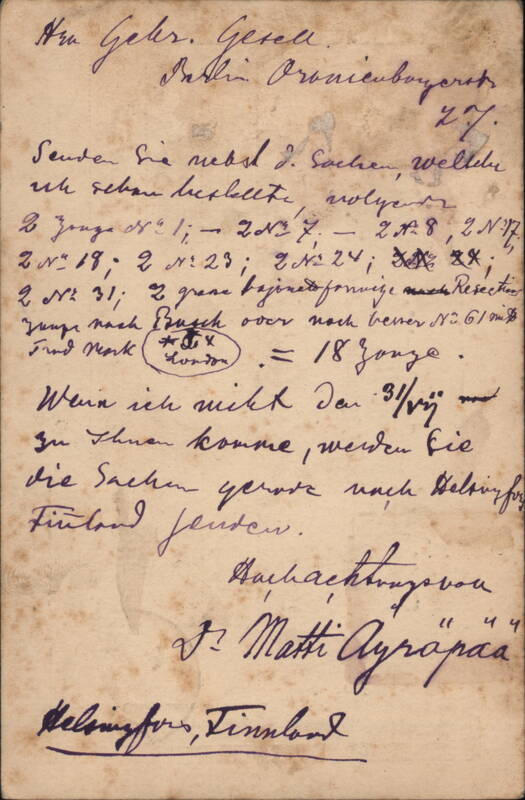 Hrn Gebr. Gesell.
Berlin Oranienburgerstr
27.
Senden Sie nebst d. Sachen, welche
ich schon bestellte, volgende
2 Zange No 1; — 2 No 7, — 2 No 8, 2 No 17,
2 No 18; 2 No 23; 2 No 24;
2 No 31; 2 bajonettförmige Resection
zange nach Busch oder noch besser No 61 mit
Trad Mark London . = 18 Zange.
Wenn ich nikt den 31/VII
zu Ihnen komme, werden Sie
die Sachen gerade nach Helsingfors
Finland senden.
Hochachtungsvoll
Dr Matti Äyräpää
Helsingfors, Finnland